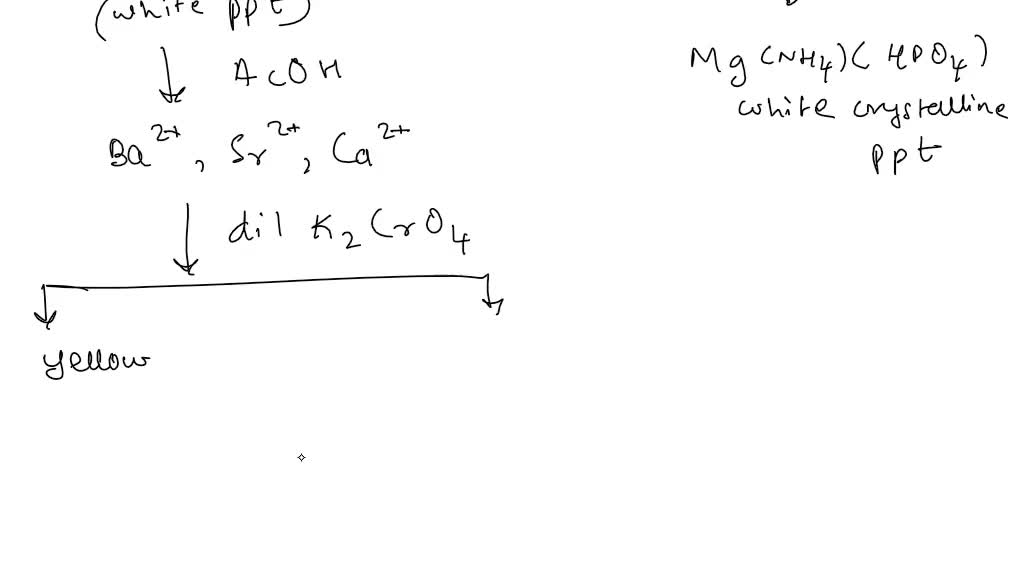 (white ppt)
AcOH
Ba²⁺, Sr²⁺, Ca²⁺
dil K₂CrO₄
yellow
Mg(NH₄)(HPO₄)
white crystalline
ppt